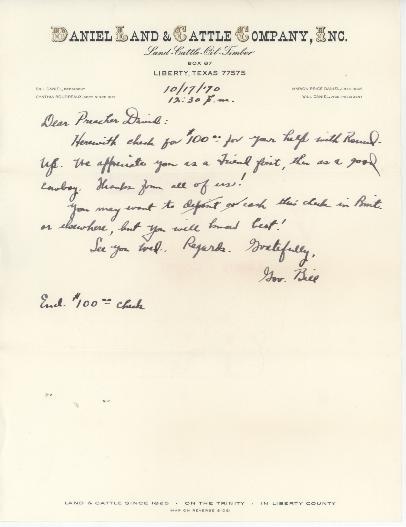 DANIEL LAND & CATTLE COMPANY, INC.
Land-Cattle-Oil-Timber
BOX 87
LIBERTY, TEXAS 77575
BILL DANIEL, PRESIDENT
PRICE DANIEL
10/17/90
12:30 P.m.
Dear Preacher
Herewith check for $100.00 for your help with Round-
Up. We appreciate you as a friend first, then as a good
cowboy. Thanks from all of us!
You may want to deposit or cash this check in
or elsewhere, but you will know best!
See you Wed. Regards. Gratefully,
Gov. Bill
Encl. $100.00 check
LAND & CATTLE SINCE 1865 · ON THE TRINITY · IN LIBERTY COUNTY
(MAP ON REVERSE SIDE)